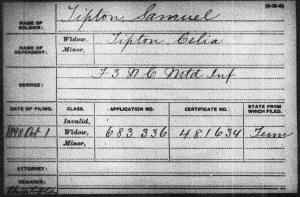 (3-312)
NAME OF SOLDIER: Tipton, Samuel
NAME OF DEPENDENT: Widow, Tipton Celia
Minor,
SERVICE: F 3 N.C. Mtd Inf
DATE OF FILING. CLASS. APPLICATION NO. CERTIFICATE NO. STATE FROM WHICH FILED.
Invalid,
1898 Oct 1 Widow, 683 336 481634 Tenn
Minor,
ATTORNEY:
REMARKS: